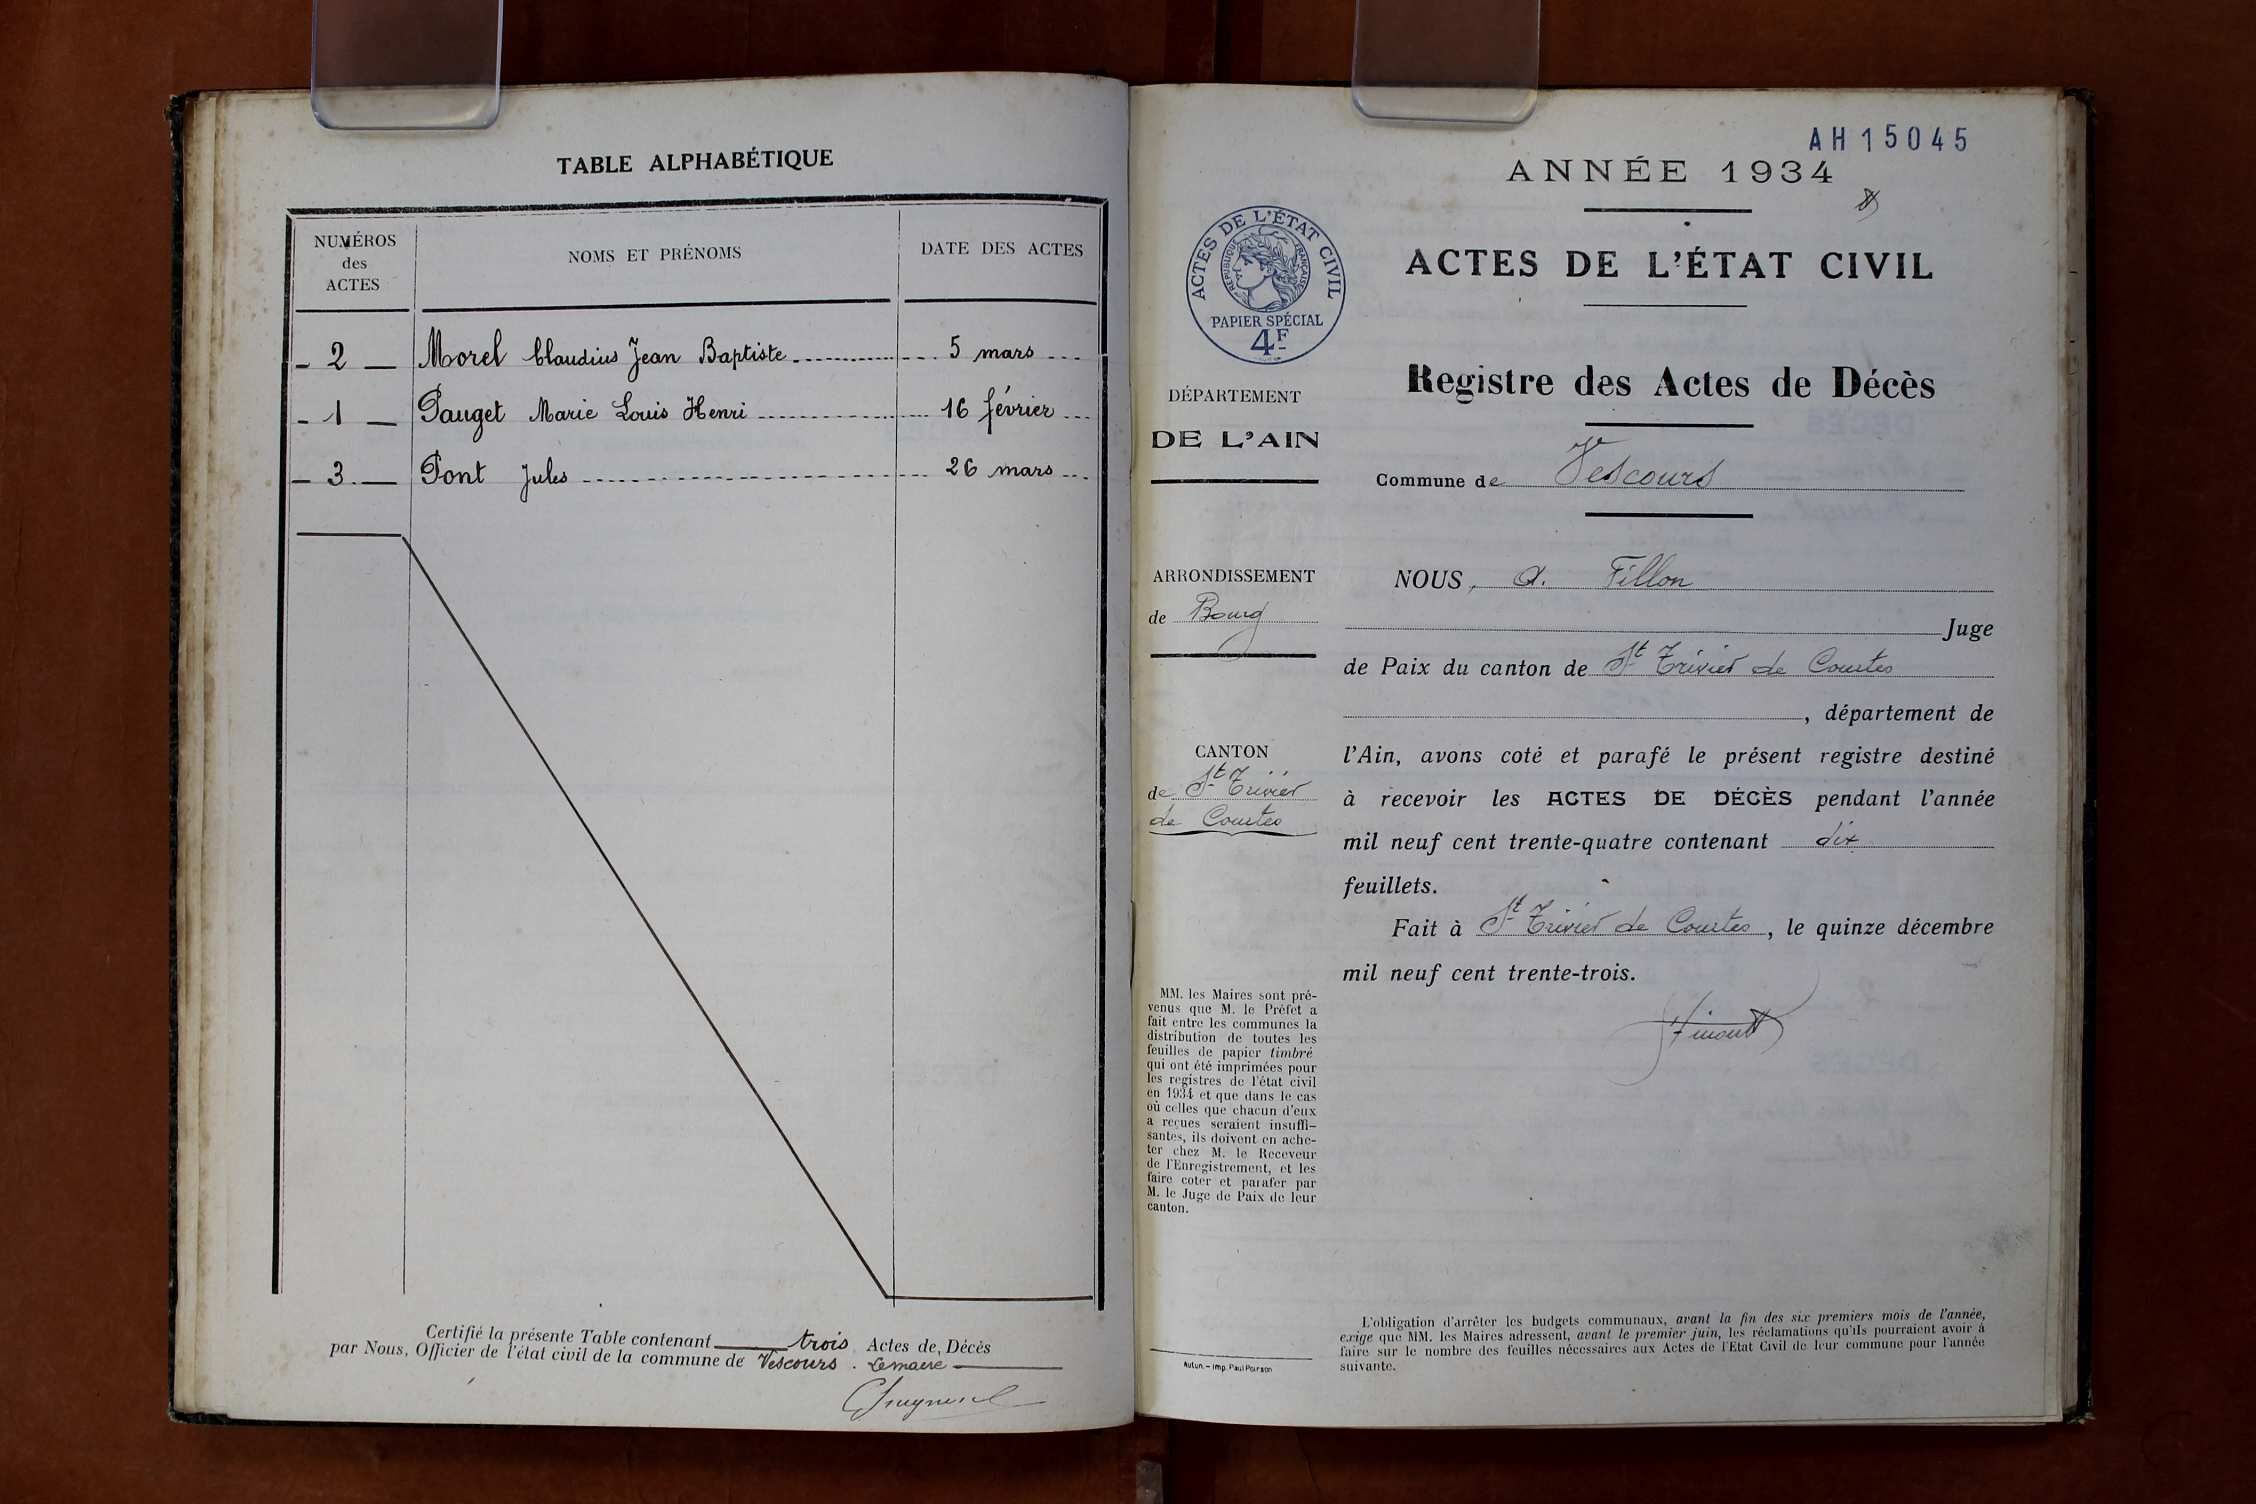 TABLE ALPHABÉTIQUE
NUMÉROS des ACTES
NOMS ET PRÉNOMS
DATE DES ACTES
- 2 - Morel Claudius Jean Baptiste 5 mars
- 1 - Pauget Marie Louis Henri 16 février
- 3 - Pont Jules 26 mars
Certifié la présente Table contenant trois Actes de Décès
par Nous, Officier de l'état civil de la commune de Vescours. Le maire
AH15045
ANNÉE 1934
ACTES DE L'ÉTAT CIVIL
RÉPUBLIQUE FRANÇAISE
PAPIER SPÉCIAL
4F
ACTES DE L'ÉTAT CIVIL
Registre des Actes de Décès
DÉPARTEMENT
DE L'AIN
Commune de Vescours
ARRONDISSEMENT
de Bourg
CANTON
de St Trivier
de Courtes
NOUS, A. Fillon
Juge
de Paix du canton de St Trivier de Courtes
, département de
l'Ain, avons coté et parafé le présent registre destiné
à recevoir les ACTES DE DÉCÈS pendant l'année
mil neuf cent trente-quatre contenant dix
feuillets.
Fait à St Trivier de Courtes, le quinze décembre
mil neuf cent trente-trois.
MM. les Maires sont pré-
venus que M. le Préfet a
fait entre les communes la
distribution de toutes les
feuilles de papier timbré
qui ont été imprimées pour
les registres de l'état civil
en 1934 et que dans le cas
où celles que chacun d'eux
a reçues seraient insuffi-
santes, ils doivent en ache-
ter chez M. le Receveur
de l'Enregistrement, et les
faire coter et parafer par
M. le Juge de Paix de leur
canton.
Autun. - Imp. Paul Poirson
L'obligation d'arrêter les budgets communaux, avant la fin des six premiers mois de l'année,
exige que MM. les Maires adressent, avant le premier juin, les réclamations qu'ils pourraient avoir à
faire sur le nombre des feuilles nécessaires aux Actes de l'Etat Civil de leur commune pour l'année
suivante.